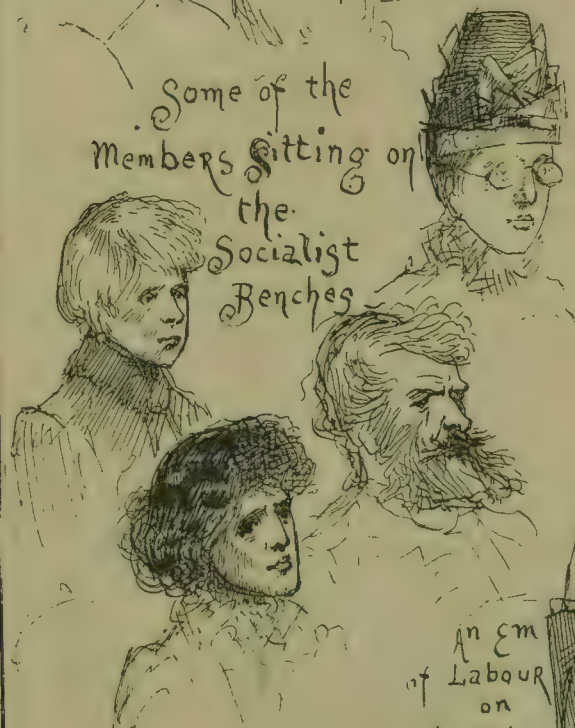 Some of the
Members Sitting on
the
Socialist
Benches
An Em
of Labour
on